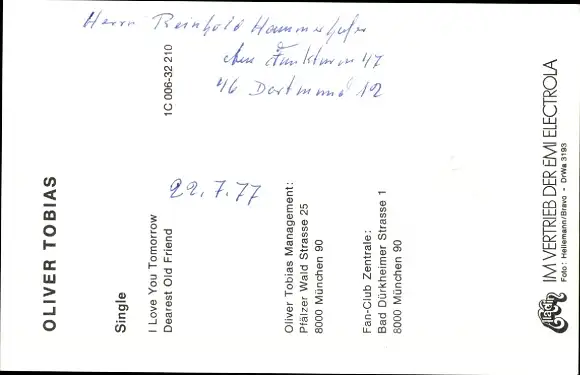 Herrn Reinhold Hammerhofer
Am Funkturm 47
46 Dortmund 12
22.7.77
OLIVER TOBIAS
Single
I Love You Tomorrow
Dearest Old Friend
1C 006-32 210
Oliver Tobias Management:
Pfälzer Wald Strasse 25
8000 München 90
Fan-Club Zentrale:
Bad Dürkheimer Strasse 1
8000 München 90
Aladin
IM VERTRIEB DER EMI ELECTROLA
Foto: Heilemann/Bravo · DrWa 3193